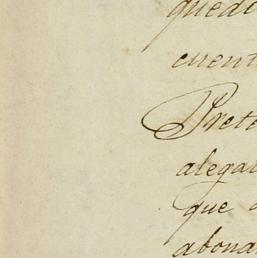 quedi
cuent
Prete
alega
que
abona